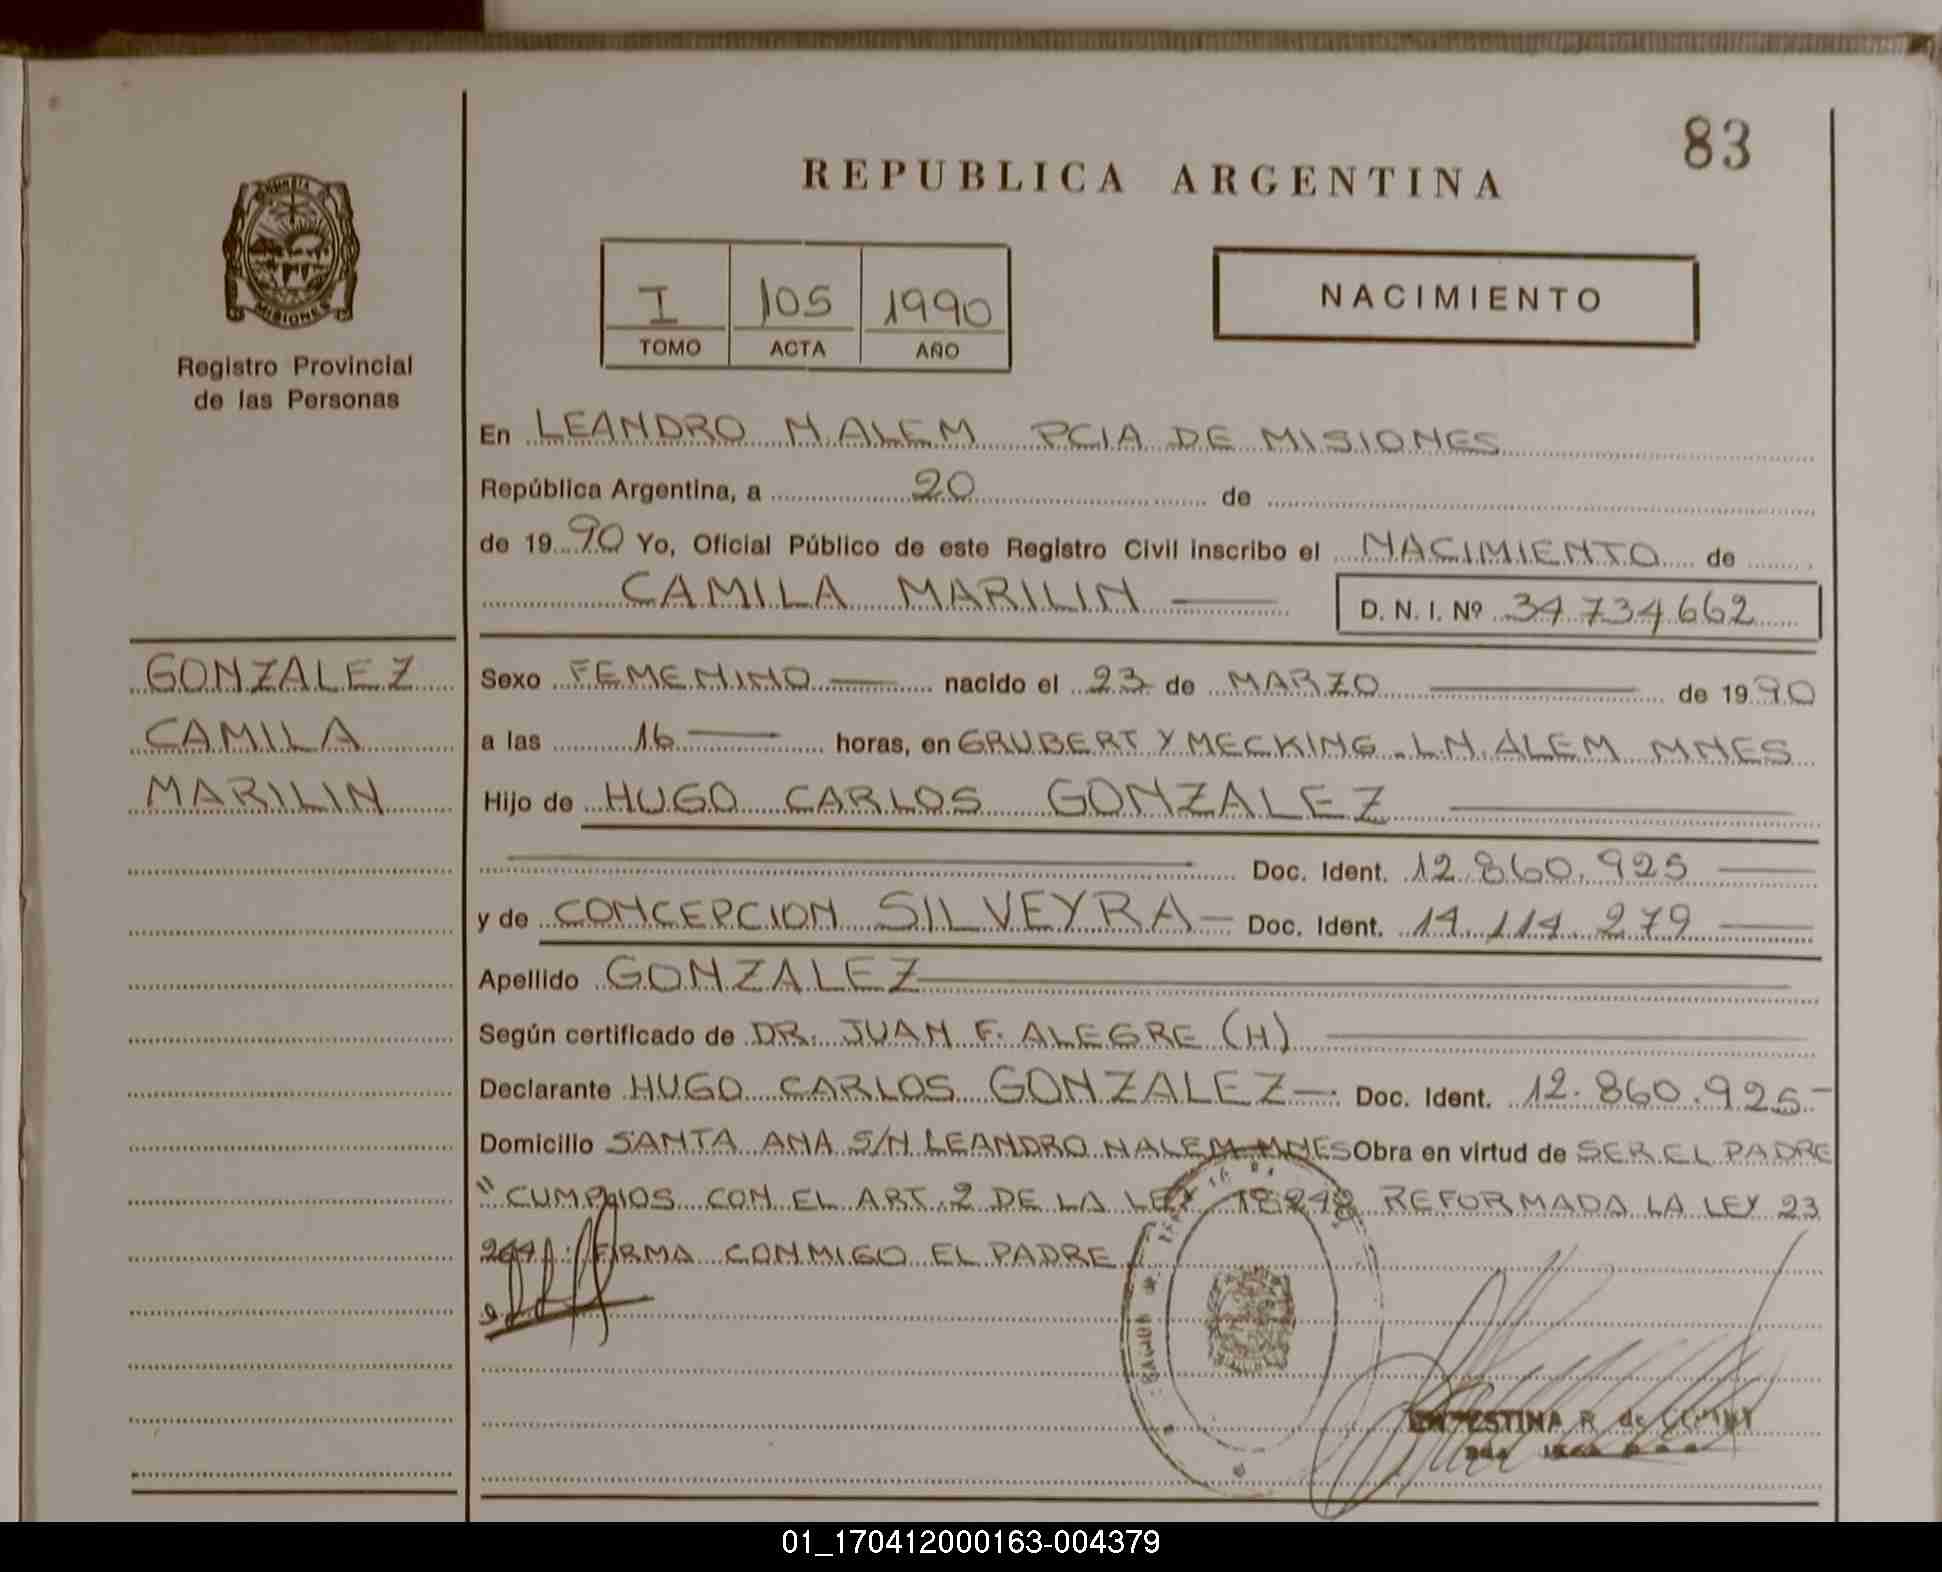 83
REPUBLICA ARGENTINA
MISIONES
Registro Provincial
de las Personas
I 105 1990
TOMO ACTA AÑO
NACIMIENTO
En LEANDRO N. ALEM PCIA DE MISIONES
República Argentina, a 20 de
de 1990 Yo, Oficial Público de este Registro Civil inscribo el NACIMIENTO de
CAMILA MARILIN D. N. I. Nº 34.734.662
GONZALEZ
CAMILA
MARILIN
Sexo FEMENINO nacido el 23 de MARZO de 1990
a las 16 horas, en GRUBERT Y MECKING - L.N. ALEM MNES
Hijo de HUGO CARLOS GONZALEZ
Doc. Ident. 12.860.925
y de CONCEPCION SILVEYRA Doc. Ident. 14.114.279
Apellido GONZALEZ
Según certificado de DR. JUAN F. ALEGRE (H)
Declarante HUGO CARLOS GONZALEZ Doc. Ident. 12.860.925
Domicilio SANTA ANA S/N LEANDRO N ALEM MNES Obra en virtud de SER EL PADRE
"CUMPNIOS CON EL ART. 2 DE LA LEY 18248 REFORMADA LA LEY 23
264 FIRMA CONMIGO EL PADRE
R. de
01_170412000163-004379